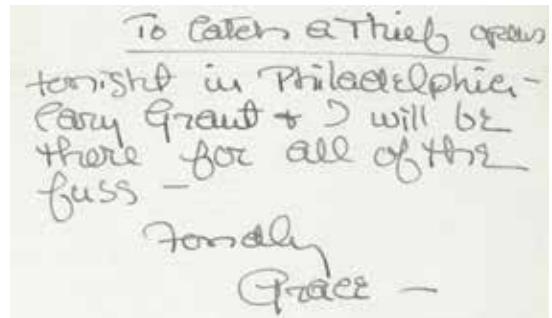 To Catch a Thief opens
tonight in Philadelphia -
Cary Grant + I will be
there for all of the
fuss -
Fondly
Grace -